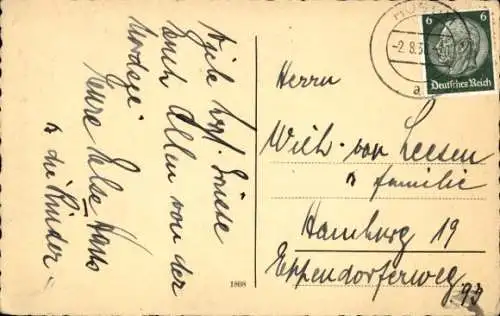 Viele hzl. Grüsse
Euch Allen von der
Nordsee.
Eure Else Hans
u die Kinder
1808
6 6
Deutsches Reich
-2.8.3
a
Herrn
Wilh. von Leesen
u familie
Hamburg 19
Eppendorferweg
93